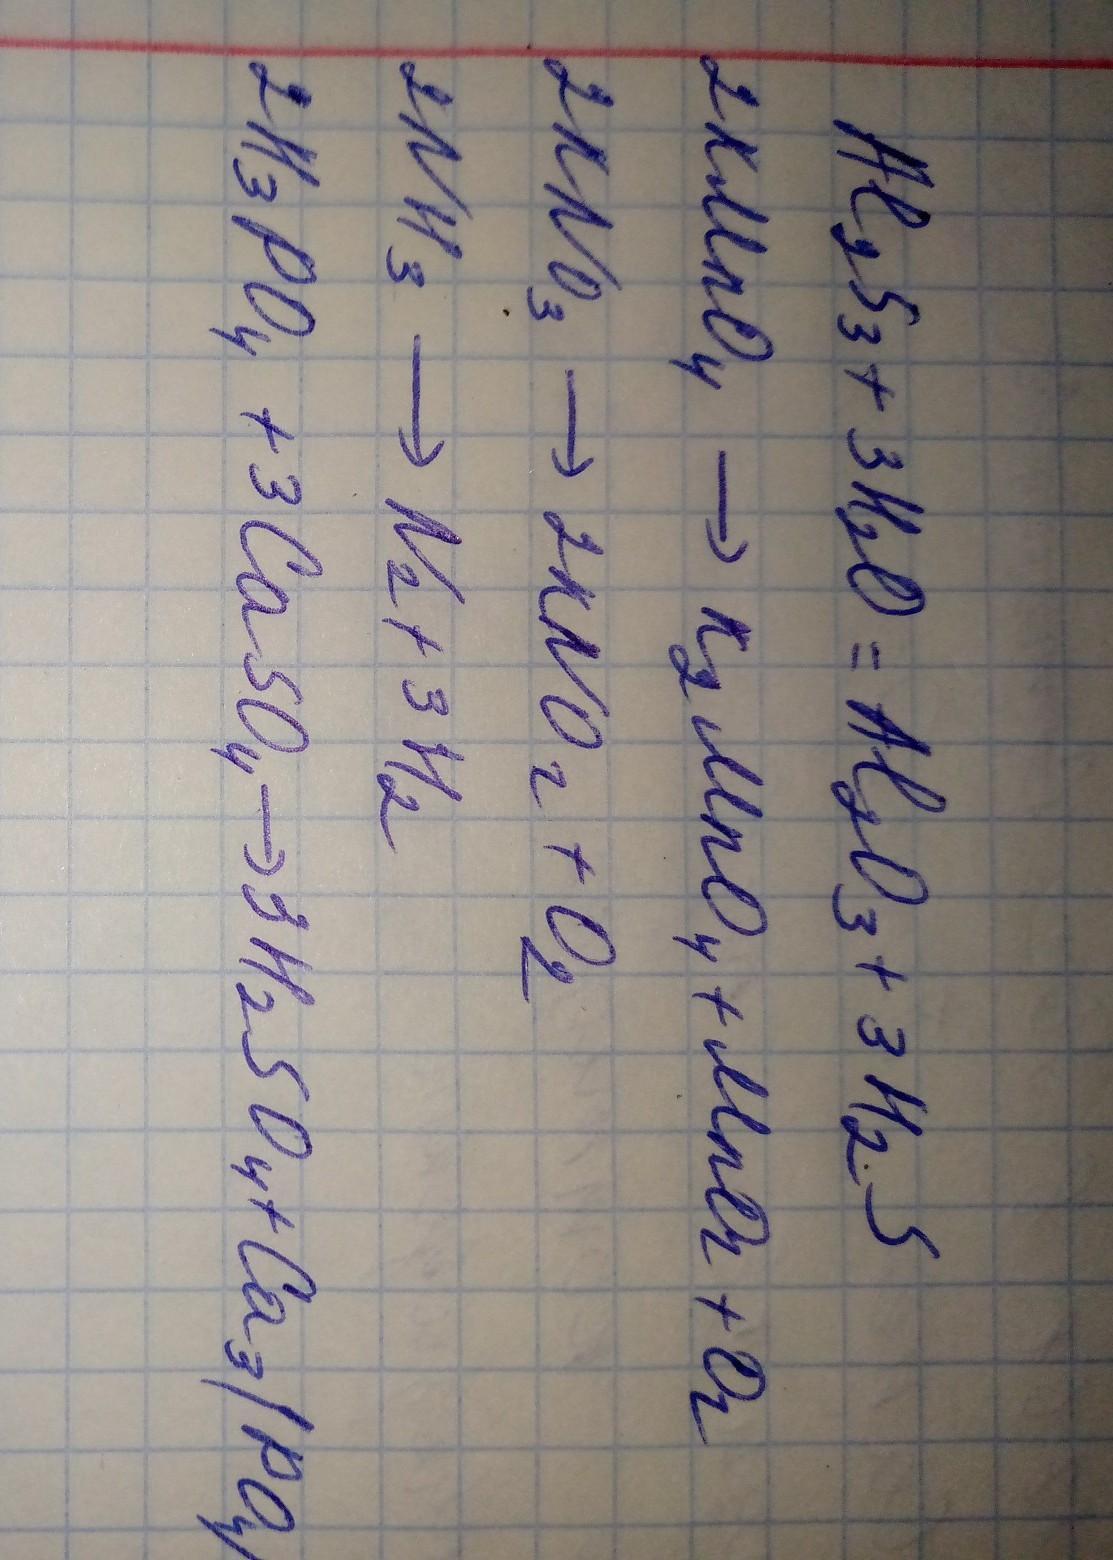 Al₂S₃ + 3H₂O = Al₂O₃ + 3H₂S
2KMnO₄ → K₂MnO₄ + MnO₂ + O₂
2KNO₃ → 2KNO₂ + O₂
2NH₃ → N₂ + 3H₂
2H₃PO₄ + 3CaSO₄ → 3H₂SO₄ + Ca₃(PO₄)